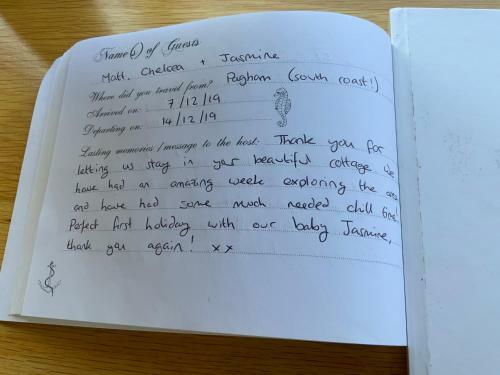 Name(s) of Guests
Matt, Chelsea + Jasmine
Where did you travel from? Pagham (south coast!)
Arrived on: 7/12/19
Departing on: 14/12/19
Lasting memories / message to the host: Thank you for
letting us stay in your beautiful cottage we
have had an amazing week exploring the area
and have had some much needed chill time!
Perfect first holiday with our baby Jasmine,
thank you again! xx